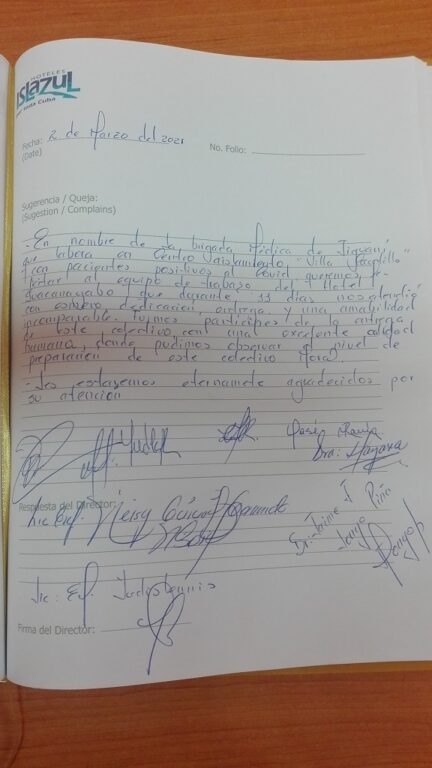 HOTELES
ISLAZUL
por toda Cuba
Fecha: 2 de Marzo del 2021
(Date)
No. Folio:
Sugerencia / Queja:
(Sugestion / Complains)
- En nombre de la brigada Médica de Jiguaní
que labora en Centro Aislamiento "Villa
con pacientes positivos al Covid queremos
al equipo de trabajo del Hotel
Guacanayabo que durante 11 días nos atendió
con esmero, dedicación, entrega y una amabilidad
incomparable, fuimos partícipes de la entrega
de este colectivo con una excelente calidad
humana, donde pudimos observar el nivel de
preparación de este colectivo
- Les estaremos eternamete agradecidos por
su atención
Dra: Dayana
Respuesta del Director:
Lic Enf.
Dr: Jaime Piña
Lic: Enf.
Firma del Director: